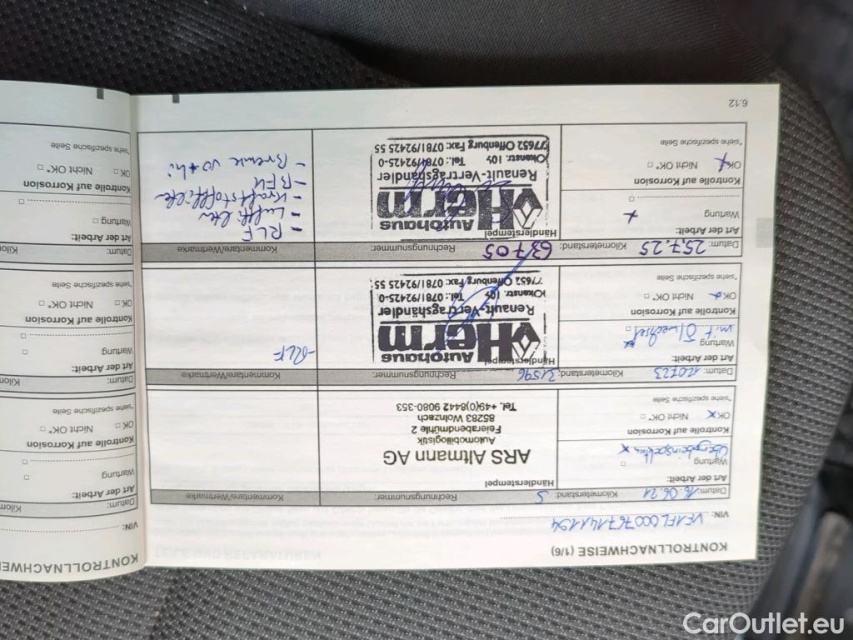 KONTROLLNACHWEISE (1/6)
VIN: VF1FL000767141194
Datum: 16.06.21 Kilometerstand: 5 Rechnungsnummer: Kommentare/Wertmarke
Art der Arbeit: Händlerstempel
Wartung
Kontrolle auf Korrosion
OK Nicht OK*
*siehe spezifische Seite
ARS Altmann AG
Automobillogistik
Feierabendmühle 2
85283 Wolnzach
Tel. +49(0)8442 9080-353
Datum: Kilometerstand: 31596 Rechnungsnummer: Kommentare/Wertmarke
Art der Arbeit: Händlerstempel
Wartung
mit Ölwechsel
Kontrolle auf Korrosion
OK Nicht OK*
*siehe spezifische Seite
Autohaus
Herm
Renault-Vertragshändler
Tel.: 0781/92425-0
77652 Offenburg Fax: 0781/92425 55
-RLF
Datum: 25.7.25 Kilometerstand: 63705 Rechnungsnummer: Kommentare/Wertmarke
Art der Arbeit: Händlerstempel
Wartung
Kontrolle auf Korrosion
OK Nicht OK*
*siehe spezifische Seite
Autohaus
Herm
Renault-Vertragshändler
Tel.: 0781/92425-0
77652 Offenburg Fax: 0781/92425 55
- RLF
- Luftfilter
- Kraftstofffilter
- BFW
- Bremse vo + hi
6.12
KONTROLLNACHWEISE
VIN:
Datum: Kilom
Art der Arbeit:
Wartung
Kontrolle auf Korrosion
OK Nicht OK*
*siehe spezifische Seite
Datum: Kilom
Art der Arbeit:
Wartung
Kontrolle auf Korrosion
OK Nicht OK*
*siehe spezifische Seite
Datum: Kilom
Art der Arbeit:
Wartung
Kontrolle auf Korrosion
OK Nicht OK*
*siehe spezifische Seite
CarOutlet.eu